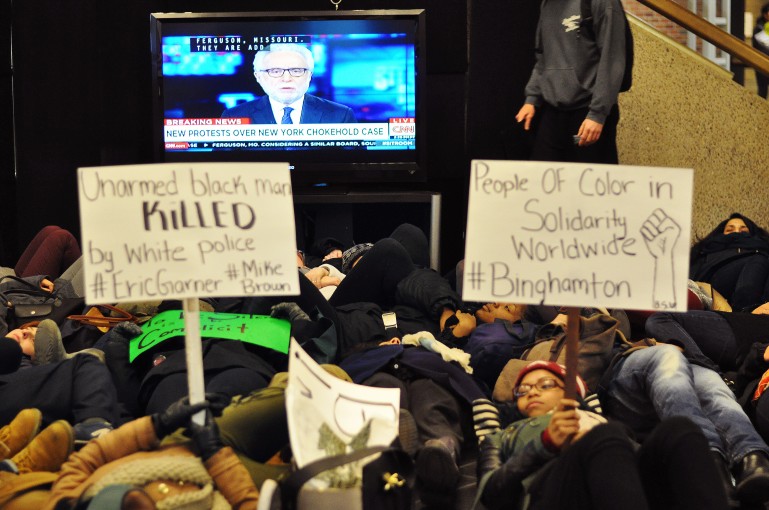 FERGUSON, MISSOURI.
THEY ARE ADD
BREAKING NEWS
LIVE
NEW PROTESTS OVER NEW YORK CHOKEHOLD CASE
CNN
FERGUSON, MO. CONSIDERING A SIMILAR BOARD,
SITROOM
Unarmed black man
KiLLED
by white police
#EricGarner #Mike
Brown
People OF Color in
Solidarity
Worldwide
#Binghamton
BSU
To Be Silent
is
Complicit